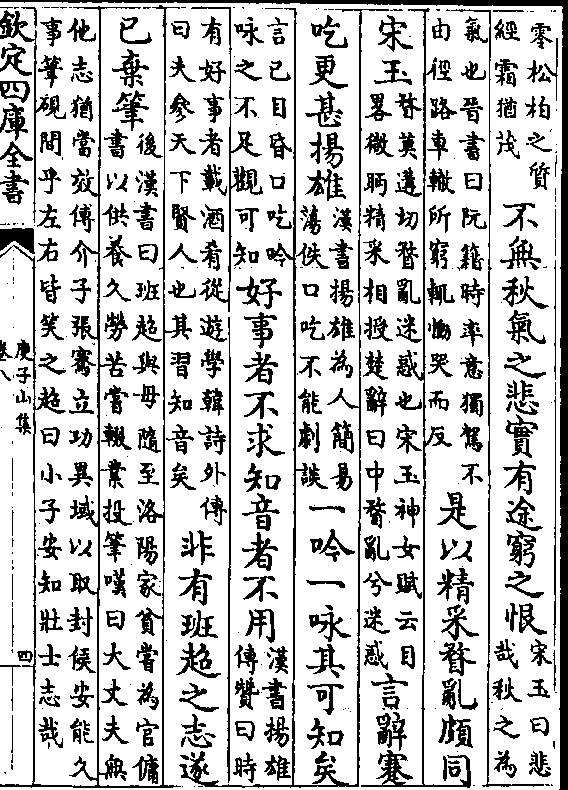 零松柏之質經霜猶茂不無秋氣之悲實有途窮之恨宋玉曰悲哉秋之為
氣也晉書曰阮籍時率意獨駕不由徑路車轍所窮輒慟哭而反是以精采瞀亂頗同
宋玉瞀莫遘切瞀亂迷惑也宋玉神女賦云目畧微眄精采相授楚辭曰中瞀亂兮迷惑言辭蹇
吃更甚揚雄漢書揚雄為人簡易蕩佚口吃不能劇談一吟一咏其可知矣
言已目昏口吃吟咏之不足觀可知好事者不求知音者不用漢書揚雄傳贊曰時
有好事者載酒肴從遊學韓詩外傳曰夫參天下賢人也其習知音矣非有班超之志遂
已棄筆後漢書曰班超與母隨至洛陽家貧嘗為官傭書以供養久勞苦嘗輟業投筆嘆曰大丈夫無
他志猶當效傅介子張騫立功異域以取封侯安能久事筆硯間乎左右皆笑之超曰小子安知壯士志哉
欽定四庫全書
庾子山集
卷八
四